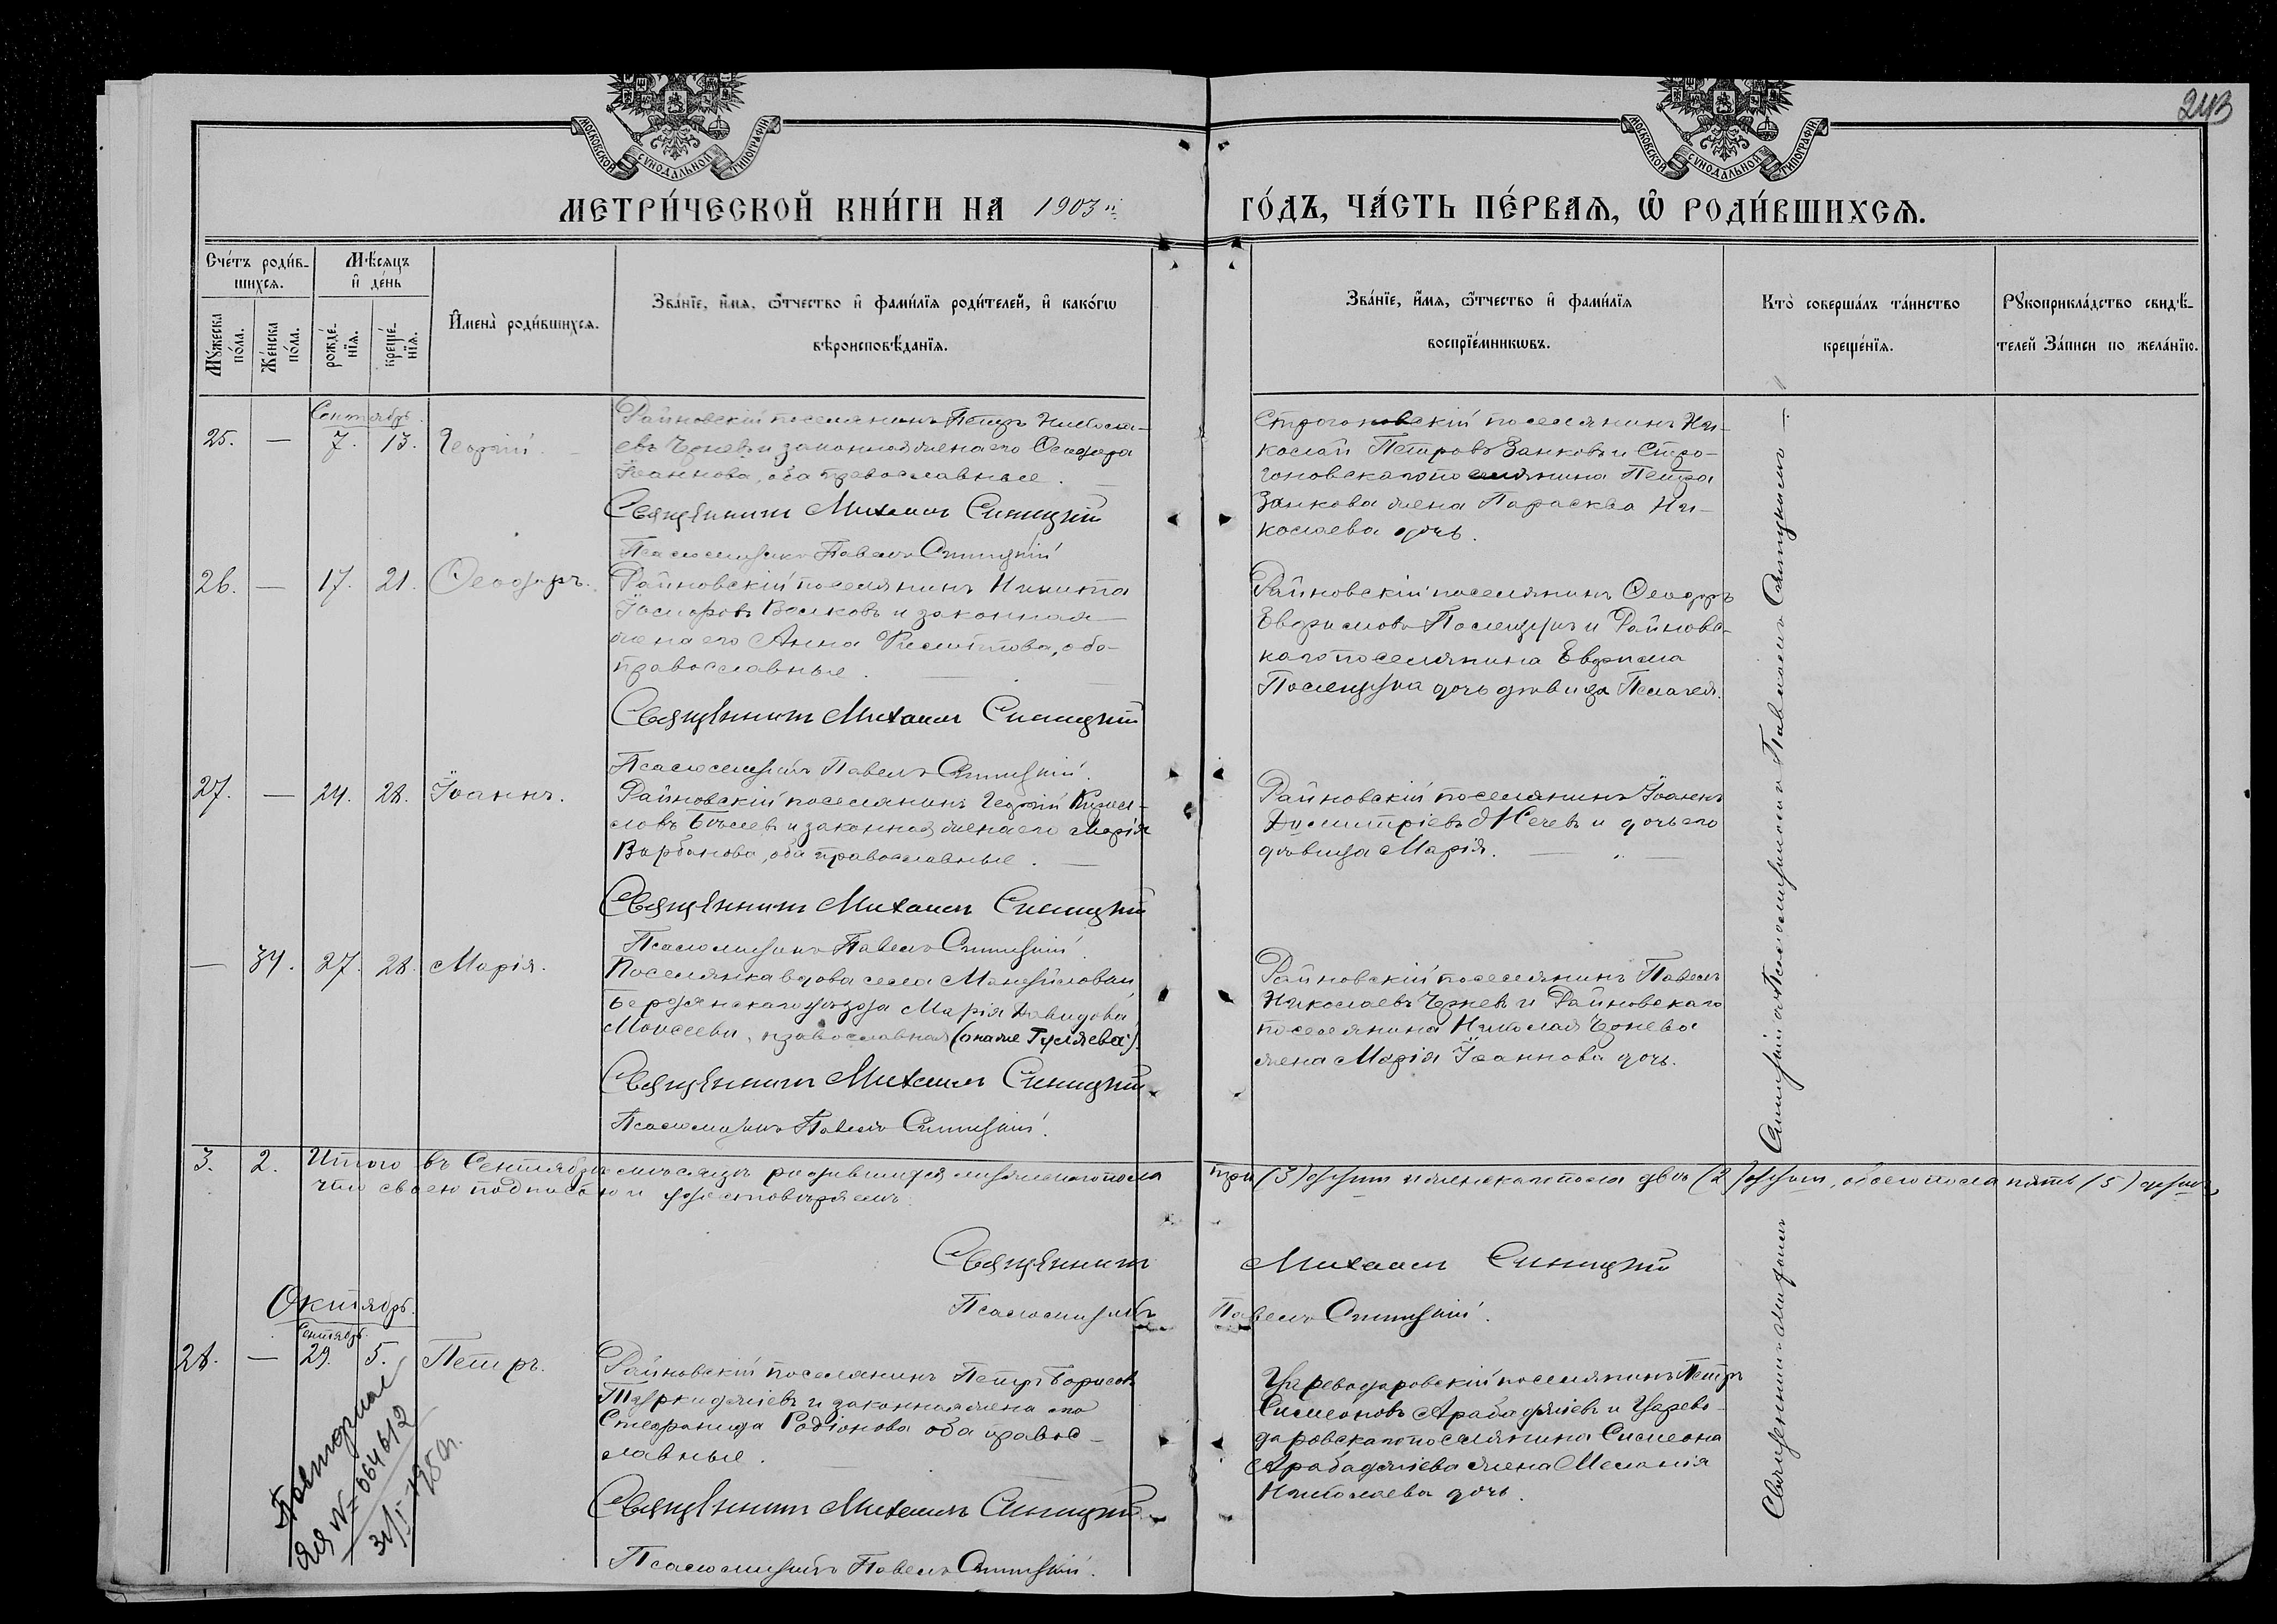 243
МОСКОВСКОЙ СѴНОДАЛЬНОЙ ТИПОГРАФІИ
МОСКОВСКОЙ СѴНОДАЛЬНОЙ ТИПОГРАФІИ
МЕТРИ́ЧЕСКОЙ КНИ́ГИ НА 1903й ГО́ДЪ, ЧА́СТЬ ПЕ́РВАѦ, Ѿ РОДИ́ВШИХСѦ.
Сче́тъ роди́в-
шихсѧ.
Мѣсѧцъ
и де́нь
Мꙋ́жеска по́ла.
Же́нска по́ла.
рожде́-
нїѧ.
креще́-
нїѧ.
Имена̀ роди́вшихсѧ.
Зва́нїе, и́мѧ, ѻ҆́тчество и фами́лїѧ роди́телей, и како́гѡ
вѣроисповѣ́данїѧ.
Зва́нїе, и́мѧ, ѻ҆́тчество и фами́лїѧ
воспрїе́мникѡвъ.
Кто̀ соверша́лъ та́инство
креще́нїѧ.
Рꙋкоприкла́дство свидѣ́-
телей За́писи по жела́нїю.
Сентябрь.
25. — 7. 13. Георгій.
Райновскій поселянинъ Петръ Никола-
евъ Чернев и законная жена его Ѳеодора
Іоаннова, оба православные.
Священникъ Михаилъ Синицкій
Псаломщикъ Павелъ
Строгоновскій поселянинъ Ни-
колай Петровъ Занковъ и Стро-
гоновскаго поселянина Петра
Занкова жена Параскева Ни-
колаева дочь.
26. — 17. 21. Ѳеодоръ.
Райновскій поселянинъ Никита
Іосифовъ Волковъ и законная
жена его Анна Филиппова, оба
православные.
Священникъ Михаилъ Синицкій
Псаломщикъ Павелъ
Райновскій поселянинъ Ѳеодоръ
Евфимовъ Полещукъ и Райновс-
каго поселянина Евфима
Полещука дочь дѣвица Пелагея.
27. — 24. 28. Іоаннъ.
Райновскій поселянинъ Георгій
и законная жена его Марія
Варбанова, оба православные.
Священникъ Михаилъ Синицкій
Псаломщикъ Павелъ
Райновскій поселянинъ Іоаннъ
Димитріевъ Нечевъ и дочь его
дѣвица Марія.
— 34. 27. 28. Марія.
Поселянка вдова села Мануйловки
Бердянскаго уѣзда Марія Давидова
Моисеева, православная (она же Гуляева).
Священникъ Михаилъ Синицкій
Псаломщикъ Павелъ
Райновскій поселянинъ Павелъ
Николаевъ Чернев и Райновскаго
поселянина Николая Чернева
жена Марія Іоаннова дочь.
3. 2. Итого въ Сентябрѣ мѣсяцѣ родившихся мужескаго пола три (3) души и женскаго пола двѣ (2) души, обоего пола пять (5) душъ,
что своею подписью и удостовѣряемъ
Священникъ Михаилъ Синицкій
Псаломщикъ Павелъ
Октябрь.
Сентябрь.
28. — 29. 5. Петръ.
Райновскій поселянинъ Петръ Борисовъ
и законная жена его
Стефанида Родіонова оба правос-
лавные.
Священникъ Михаилъ Синицкій
Псаломщикъ Павелъ
Цареводаровскій поселянинъ Петръ
Симеоновъ Арабаджіевъ и Царево-
даровскаго поселянина Симеона
Арабаджіева жена Меланія
Николаева дочь.
Повторное
ЯЯ № 064612
Священникъ Михаилъ Синицкій съ Псаломщикомъ Павломъ